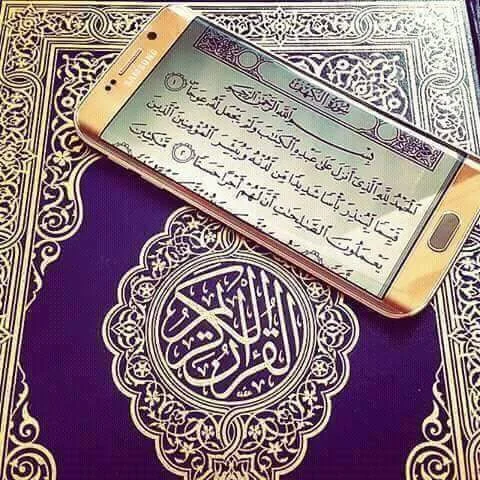 SAMSUNG
سُورَةُ الكَهْفِ
بِسْمِ اللَّهِ الرَّحْمَنِ الرَّحِيمِ
الْحَمْدُ لِلَّهِ الَّذِي أَنزَلَ عَلَى عَبْدِهِ الْكِتَبَ وَلَمْ يَجْعَل لَّهُ عِوَجَا ١
قَيِّمًا لِّيُنذِرَ بَأْسًا شَدِيدًا مِّن لَّدُنْهُ وَيُبَشِّرَ الْمُؤْمِنِينَ الَّذِينَ
يَعْمَلُونَ الصَّلِحَتِ أَنَّ لَهُمْ أَجْرًا حَسَنًا ٢ مَّكِثِينَ
القرآن الكريم